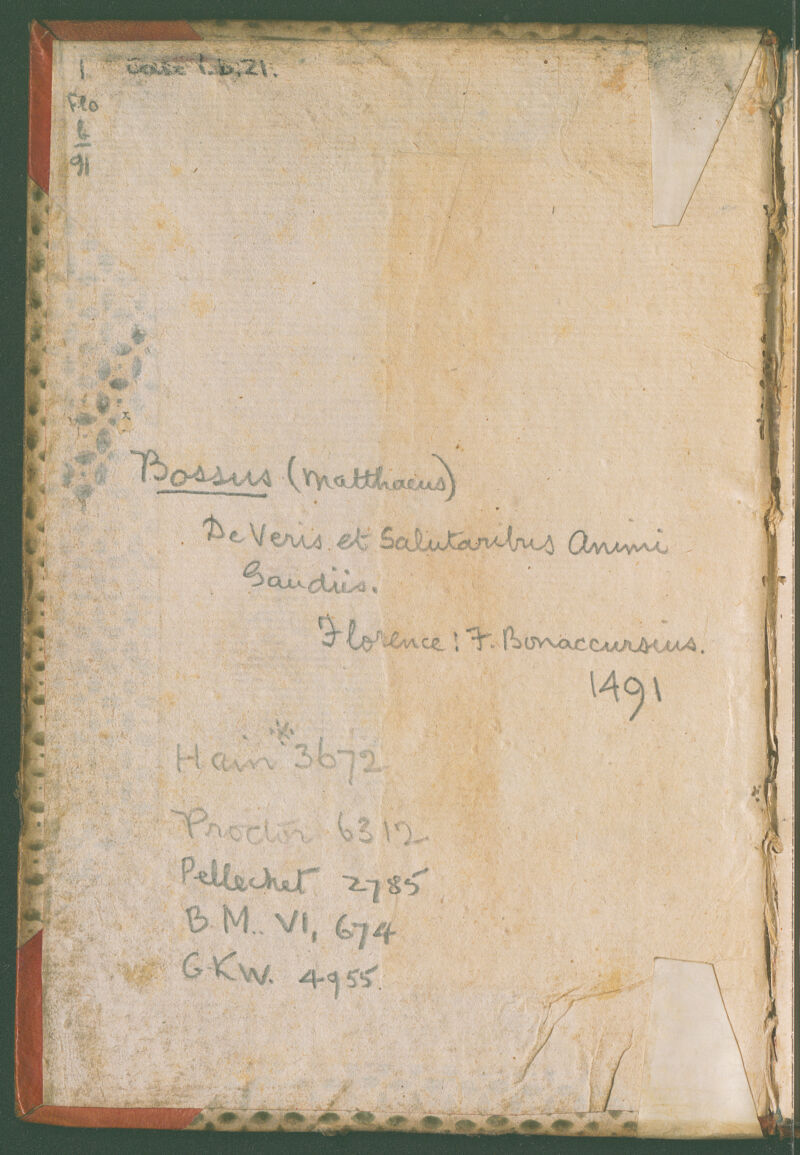 I
Flo
b
91
Case I.b,21.
Bossus (Matthaeus)
De Veris et Salutaribus Animi
Gaudiis.
Florence: F. Bonaccursius.
1491
Hain *3672
Proctor 6312
Pellechet 2785
B.M. VI, 674
GKW. 4955.